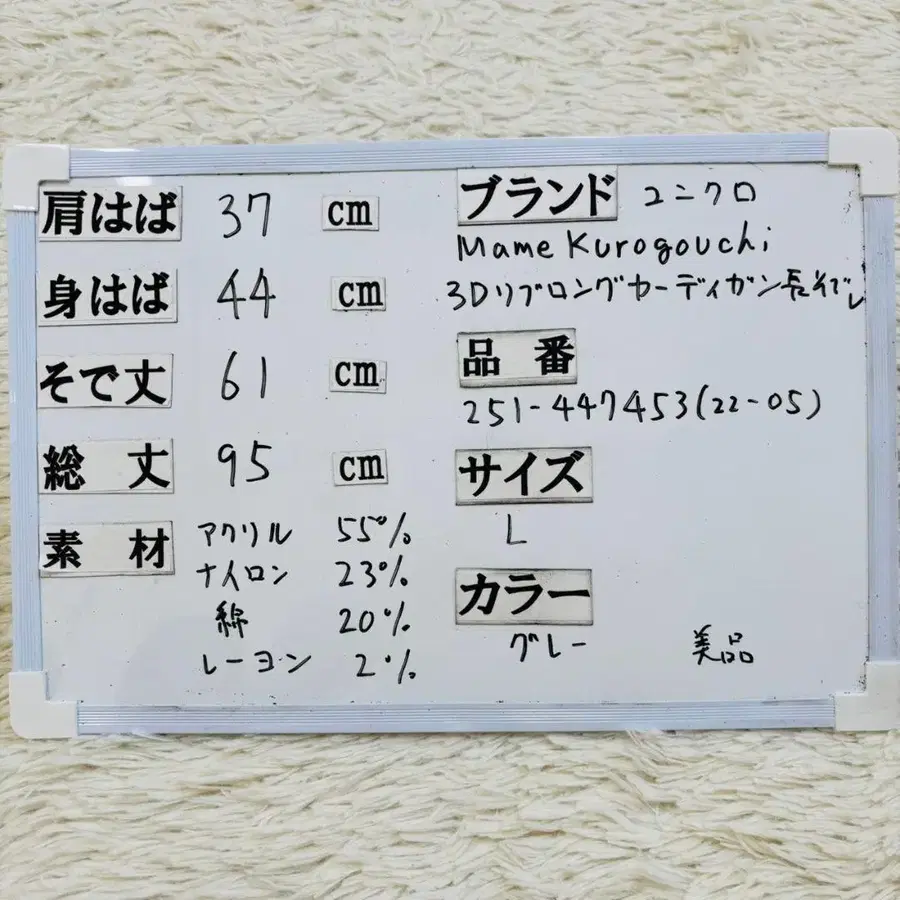 肩はば 37 cm
身はば 44 cm
そで丈 61 cm
総丈 95 cm
素材 アクリル 55%
ナイロン 23%
綿 20%
レーヨン 2%
ブランド ユニクロ
Mame Kurogouchi
3Dリブロングカーディガン長そで
品番
251-447453(22-05)
サイズ
L
カラー
グレー
美品